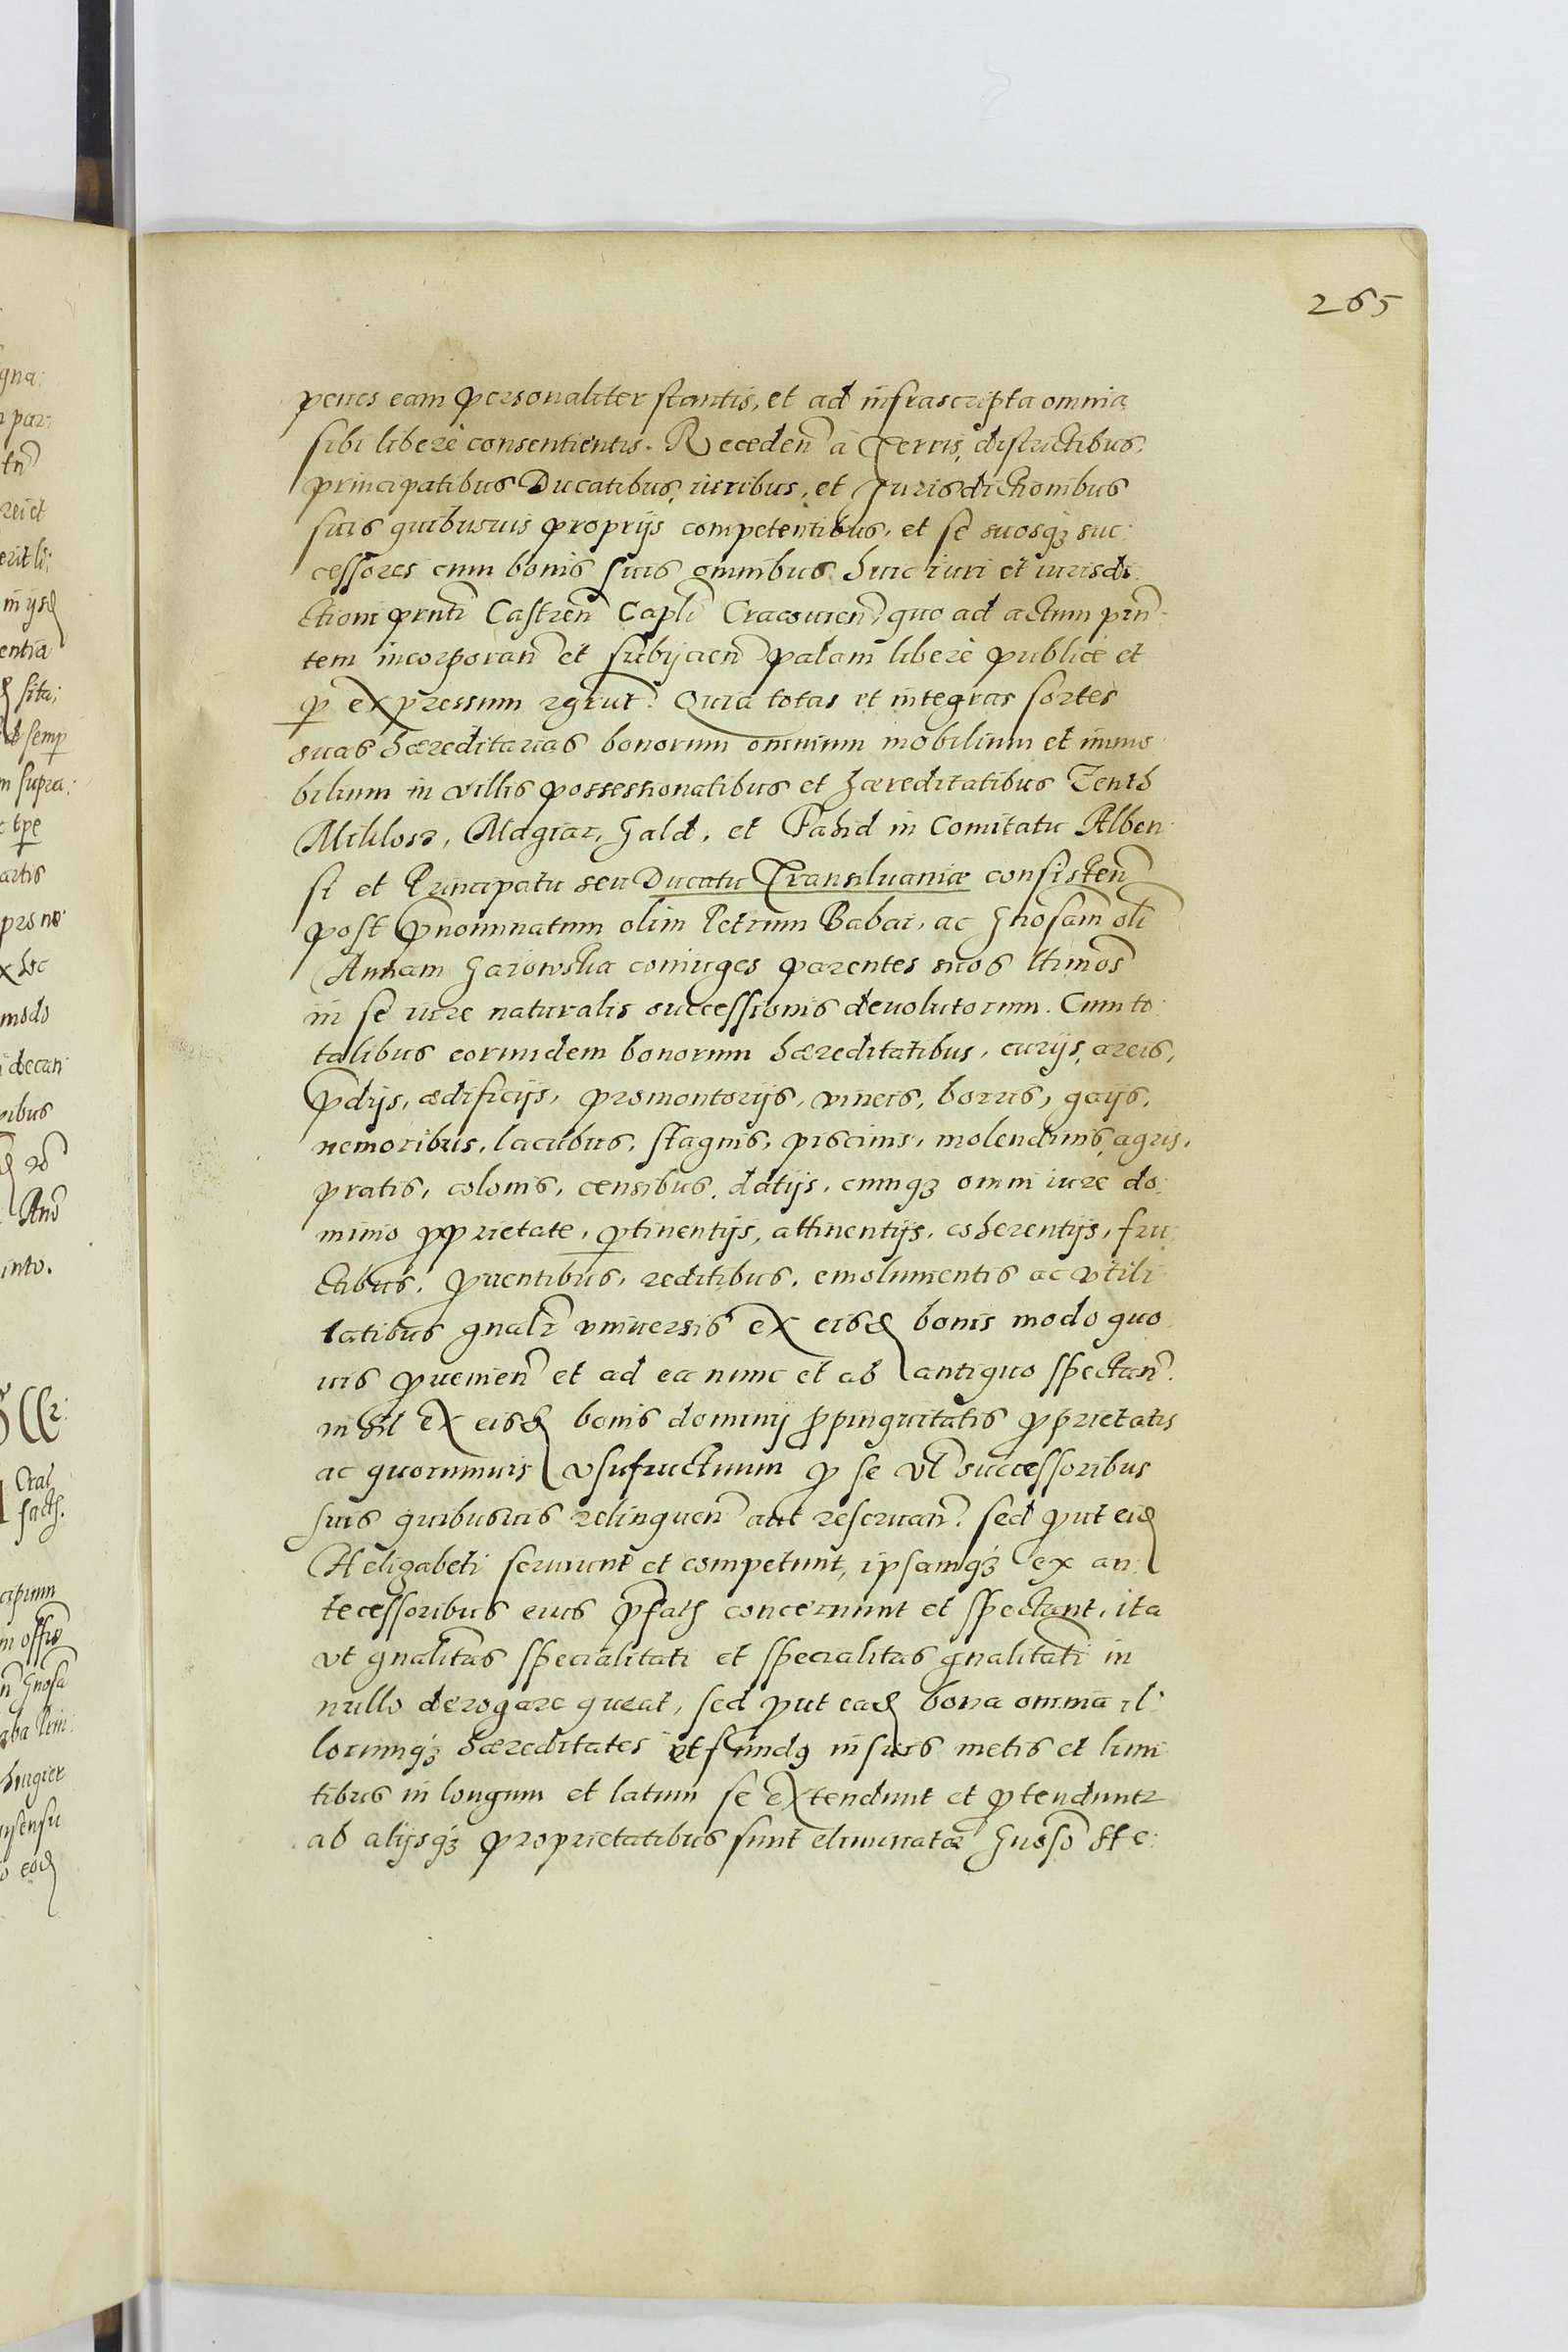 265
penes eam personaliter stantis, et ad infrascripta omnia
sibi liberè consentientis. Receden à Terris, districtibus,
principatibus Ducatibus, iuribus, et Jurisdictionibus
suis quibusuis proprijs competentibus, et se suosq3 suc:
cessores cum bonis suis omnibus huic iuri et iurisdi:
ctioni pnti Castren Capli Cracouien, quo ad actum pn:
tem incorporan et subijcien palam liberè publicè et
p expressum rgnut. Quia totas et integras sortes
suas hæreditarias bonorum omnium mobilium et immo:
bilium in villis possessionatibus et hæreditatibus Zenth
Miklosz, Magiar, Gald, et Pahid in Comitatu Alben:
si et Principatu seu Ducatu Transiluaniæ consisten
post pnominatum olim Petrum Babai, ac Gnosam oli
Annam Gaiowska coniuges parentes suos ltimos
in se iure naturalis successionis deuolutorum. Cum to:
talibus eorundem bonorum hæreditatibus, curijs, areis,
pdijs, ædificijs, promontorijs, vineis, borris, gaijs,
nemoribus, lacubus, stagnis, piscinis, molendinis, agris,
pratis, colonis, censibus, datijs, cumq3 omni iure do:
minio pprietate, ptinentijs, attinentijs, coherentijs, fru:
ctibus, puentibus, reditibus, emolumentis ac vtili:
tatibus gnalr vniuersis ex eisd bonis modo quo:
uis puenien et ad ea nunc et ab antiquo spectan.
nihil ex eisd bonis dominij ppinquitatis pprietatis
ac quorumuis vsufructuum p se vl successoribus
suis quibusuis relinquen aut reseruan. sed put eid
Helizabeti seruiunt et competunt, ipsamq3 ex an:
tecessoribus eius pfatis concernunt et spectant, ita
vt gnalitas specialitati et specialitas gnalitati in
nullo derogare queat, sed put ead bona omnia il:
lorumq3 hæreditates et fundi in suis metis et limi:
tibus in longum et latum se extendunt et ptenduntr
ab alijsq3 proprietatibus sunt eliminatæ Gnoso